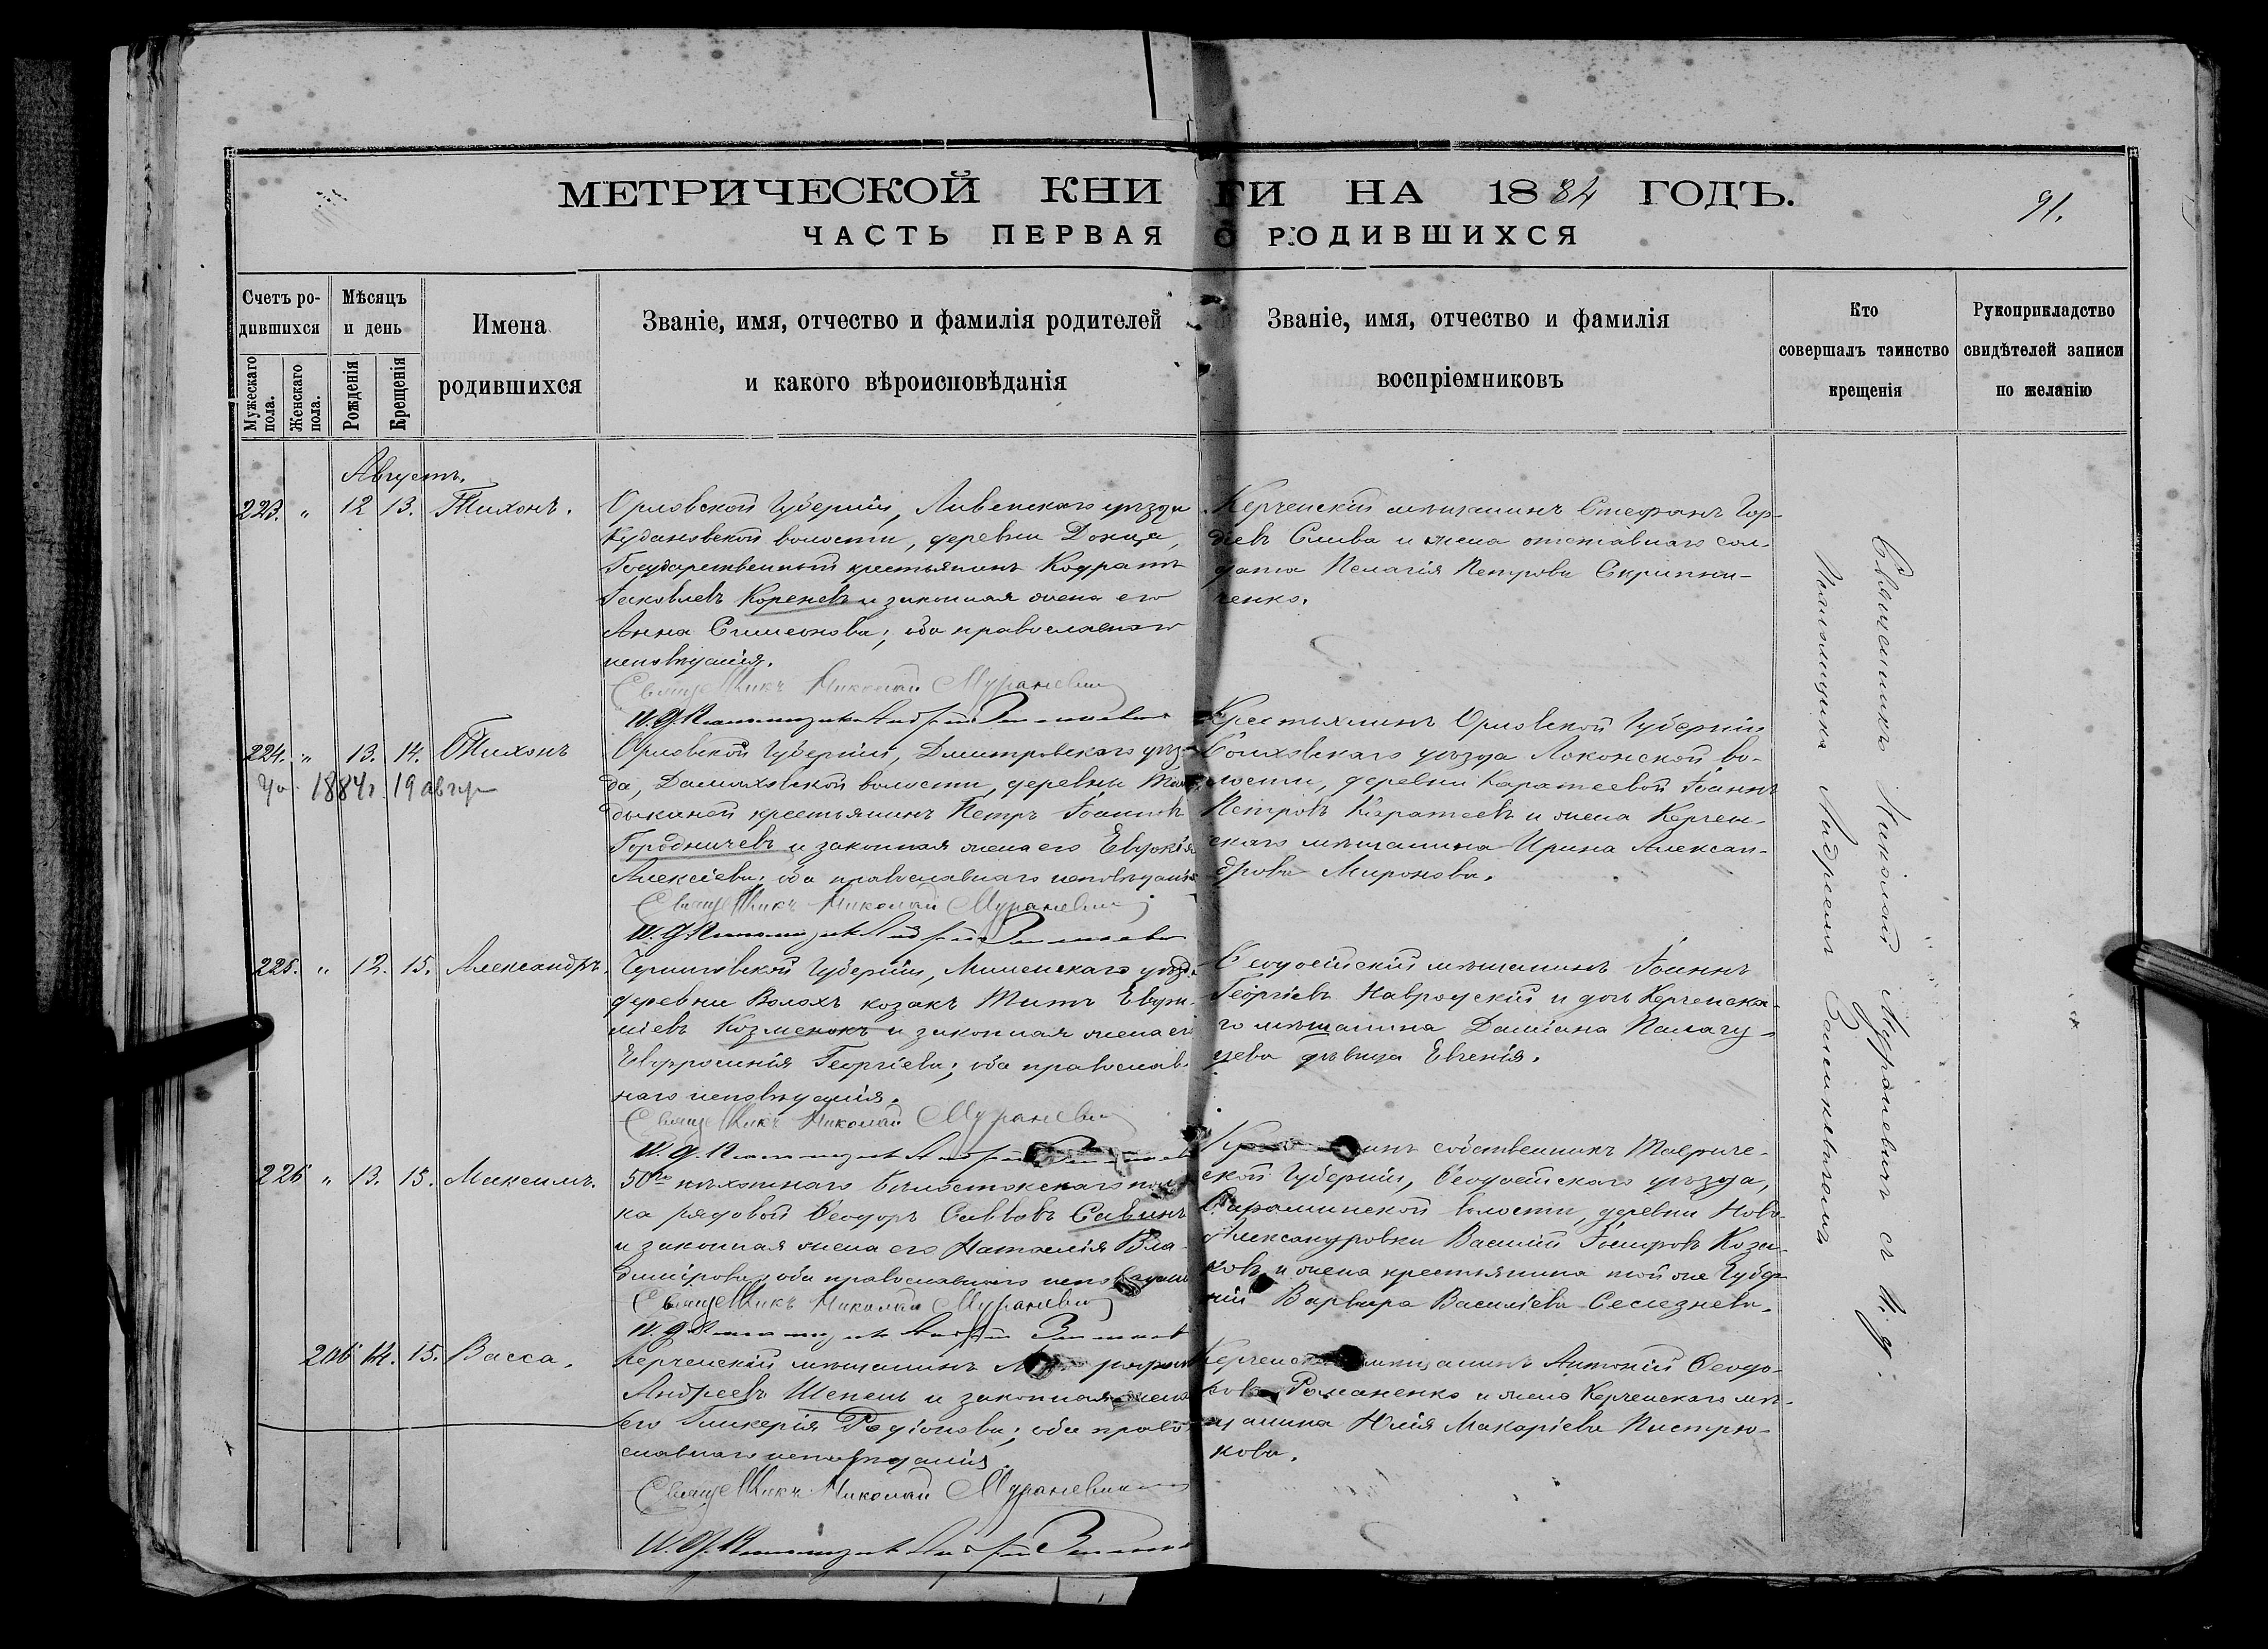 МЕТРИЧЕСКОЙ КНИГИ НА 1884 ГОДЪ.
91.
ЧАСТЬ ПЕРВАЯ О РОДИВШИХСЯ
Счетъ ро-
дившихся
Мужескаго пола.
Женскаго пола.
Мѣсяцъ
и день
Рожденія
Крещенія
Имена
родившихся
Званіе, имя, отчество и фамилія родителей
и какого вѣроисповѣданія
Званіе, имя, отчество и фамилія
воспріемниковъ
Кто
совершалъ таинство
крещенія
Рукоприкладство
свидѣтелей записи
по желанію
Августъ.
223. " 12 13. Тихонъ.
Орловской Губерніи, Ливенскаго уѣзда
волости, деревни
Государственный крестьянинъ Кодратъ
Іаковлевъ Кореневъ и законная жена его
Анна Симеонова; оба православнаго
исповѣданія.
Священникъ Николай Мураневичъ
Керченскій мѣщанинъ Стефанъ Гор-
діевъ Слива и жена отставнаго сол-
дата Пелагія Петрова Скрипни-
ченко.
224. " 13. 14. Тихонъ
1884 г. 19 авгу
Орловской Губерніи, Дмитровскаго уѣз-
да, Домаховской волости, деревни
крестьянинъ Петръ Іоанновъ
Городничевъ и законная жена его Евдокія
Алексіева; оба православнаго исповѣданія
Священникъ Николай Мураневичъ
Крестьянинъ Орловской Губерніи
Болховскаго уѣзда Локонской во-
лости, деревни Каратеевой Іоаннъ
Петровъ Каратеевъ и жена Керчен-
скаго мѣщанина Ирина Алексан-
дрова Миронова.
225. " 12. 15. Александръ.
Черниговской Губерніи, Мглинскаго уѣзда
деревни Волохъ козакъ Титъ Евфи-
міевъ Козменокъ и законная жена его
Евфросинія Георгіева; оба православ-
наго исповѣданія.
Священникъ Николай Мураневичъ
Ѳеодосійскій мѣщанинъ Іоаннъ
Георгіевъ Навродскій и дочь Керченска-
го мѣщанина Даміана
дѣвица Евгенія.
226 " 13. 15. Максимъ.
50го пѣхотнаго Бѣлостокскаго пол-
ка рядовой Ѳеодоръ Савовъ Савинъ
и законная жена его Наталія Вла-
димірова; оба православнаго исповѣданія
Священникъ Николай Мураневичъ
собственникъ Тавриче-
ской Губерніи, Ѳеодосійскаго уѣзда,
волости, деревни Ново-
Александровки Василій
и жена крестьянина той же Губер-
ніи Варвара Василіева Селезнева.
206 14. 15. Васса.
Керченскій мѣщанинъ
Андреевъ Шепель и законная жена
его Гликерія Родіонова; оба право-
славнаго исповѣданія.
Священникъ Николай Мураневичъ
Керченскій мѣщанинъ Антоній Ѳеодо-
ровъ Романенко и жена Керченскаго мѣ-
щанина Юлія Макаріева Пистрю-
кова.
Священникъ Николай Мураневичъ съ И. д.
Псаломщика Андреемъ